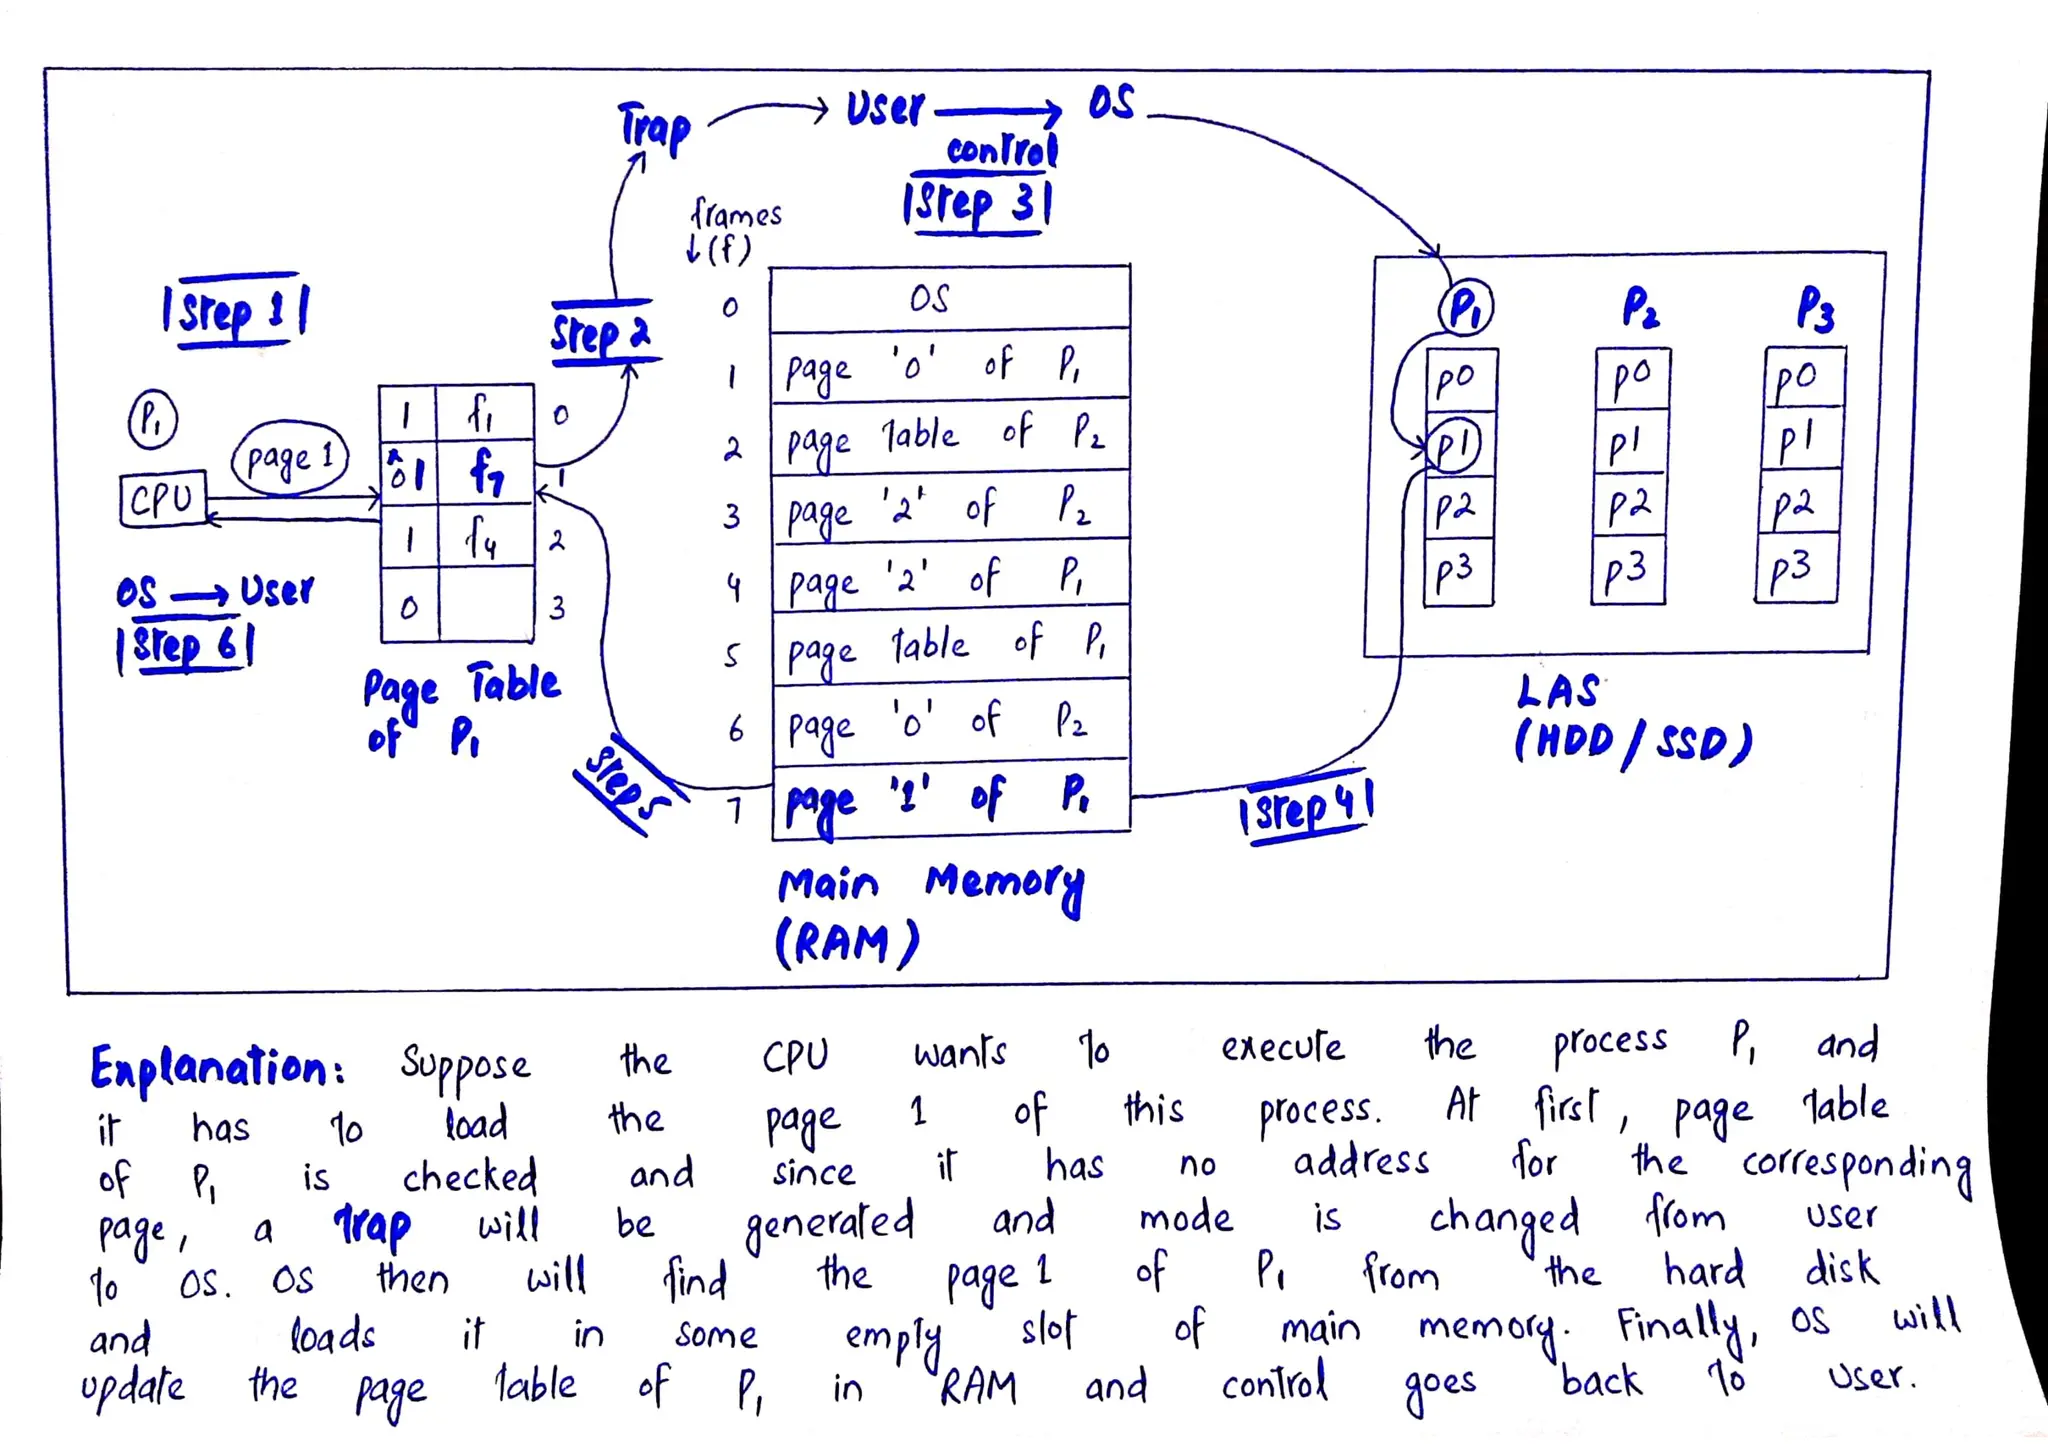 Trap → User → OS
control
|Step 3|
frames
↓(f)
|Step 1|
Step 2
P₁
page 1
CPU
OS → User
|Step 6|
1 f₁ 0
01 f₇ 1
1 f₄ 2
0 3
Page Table
of P₁
Step 5
0 OS
1 page '0' of P₁
2 page table of P₂
3 page '2' of P₂
4 page '2' of P₁
5 page table of P₁
6 page '0' of P₂
7 page '1' of P₁
Main Memory
(RAM)
|Step 4|
P₁ P₂ P3
p0 p0 p0
p1 p1 p1
p2 p2 p2
p3 p3 p3
LAS
(HDD / SSD)
Explanation: Suppose the CPU wants to execute the process P₁ and
it has to load the page 1 of this process. At first, page table
of P₁ is checked and since it has no address for the corresponding
page, a trap will be generated and mode is changed from user
to OS. OS then will find the page 1 of P₁ from the hard disk
and loads it in some empty slot of main memory. Finally, OS will
update the page table of P₁ in RAM and control goes back to user.